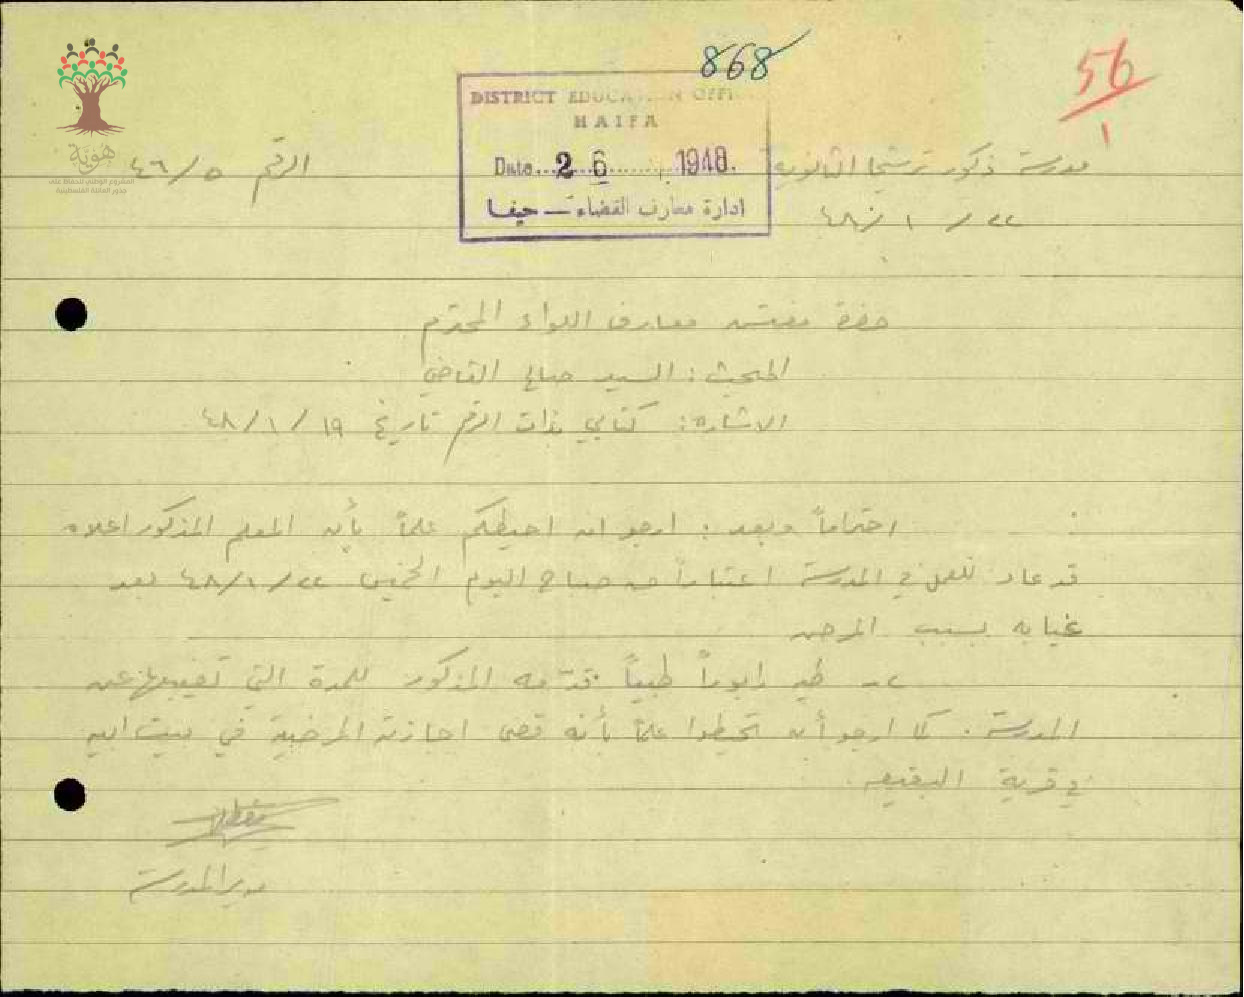 868
56
1
DISTRICT EDUCATION OFFI
HAIFA
Date... 26 ....... 1948.
ادارة معارف القضاء – حيفا
هوية
المشروع الوطني للحفاظ على
جذور العائلة الفلسطينية
مدرسة ذكور ترشيحا الثانوية
الرقم ٤٦/٥
٢٢ / ١ / ٤٨
حضرة مفتش معارف اللواء المحترم
المبحث : السيد صالح القاضي
الاشارة : كتابي بذات الرقم تاريخ ١٩ / ١ / ٤٨
احتراماً وبعد : ارجو ان احيطكم علماً بأن المعلم المذكور اعلاه
قد عاد للعمل في المدرسة اعتباراً من صباح اليوم الخميس ٢٢/١/٤٨ بعد
غيابه بسبب المرض
٢- طيه رابوراً طبياً قدّمه المذكور للمدة التي تغيبها عن
المدرسة . كما ارجو أن تحيطوا علماً بأنه قضى اجازته المرضية في بيت ابيه
في قرية البقيعه .
مدير المدرسة